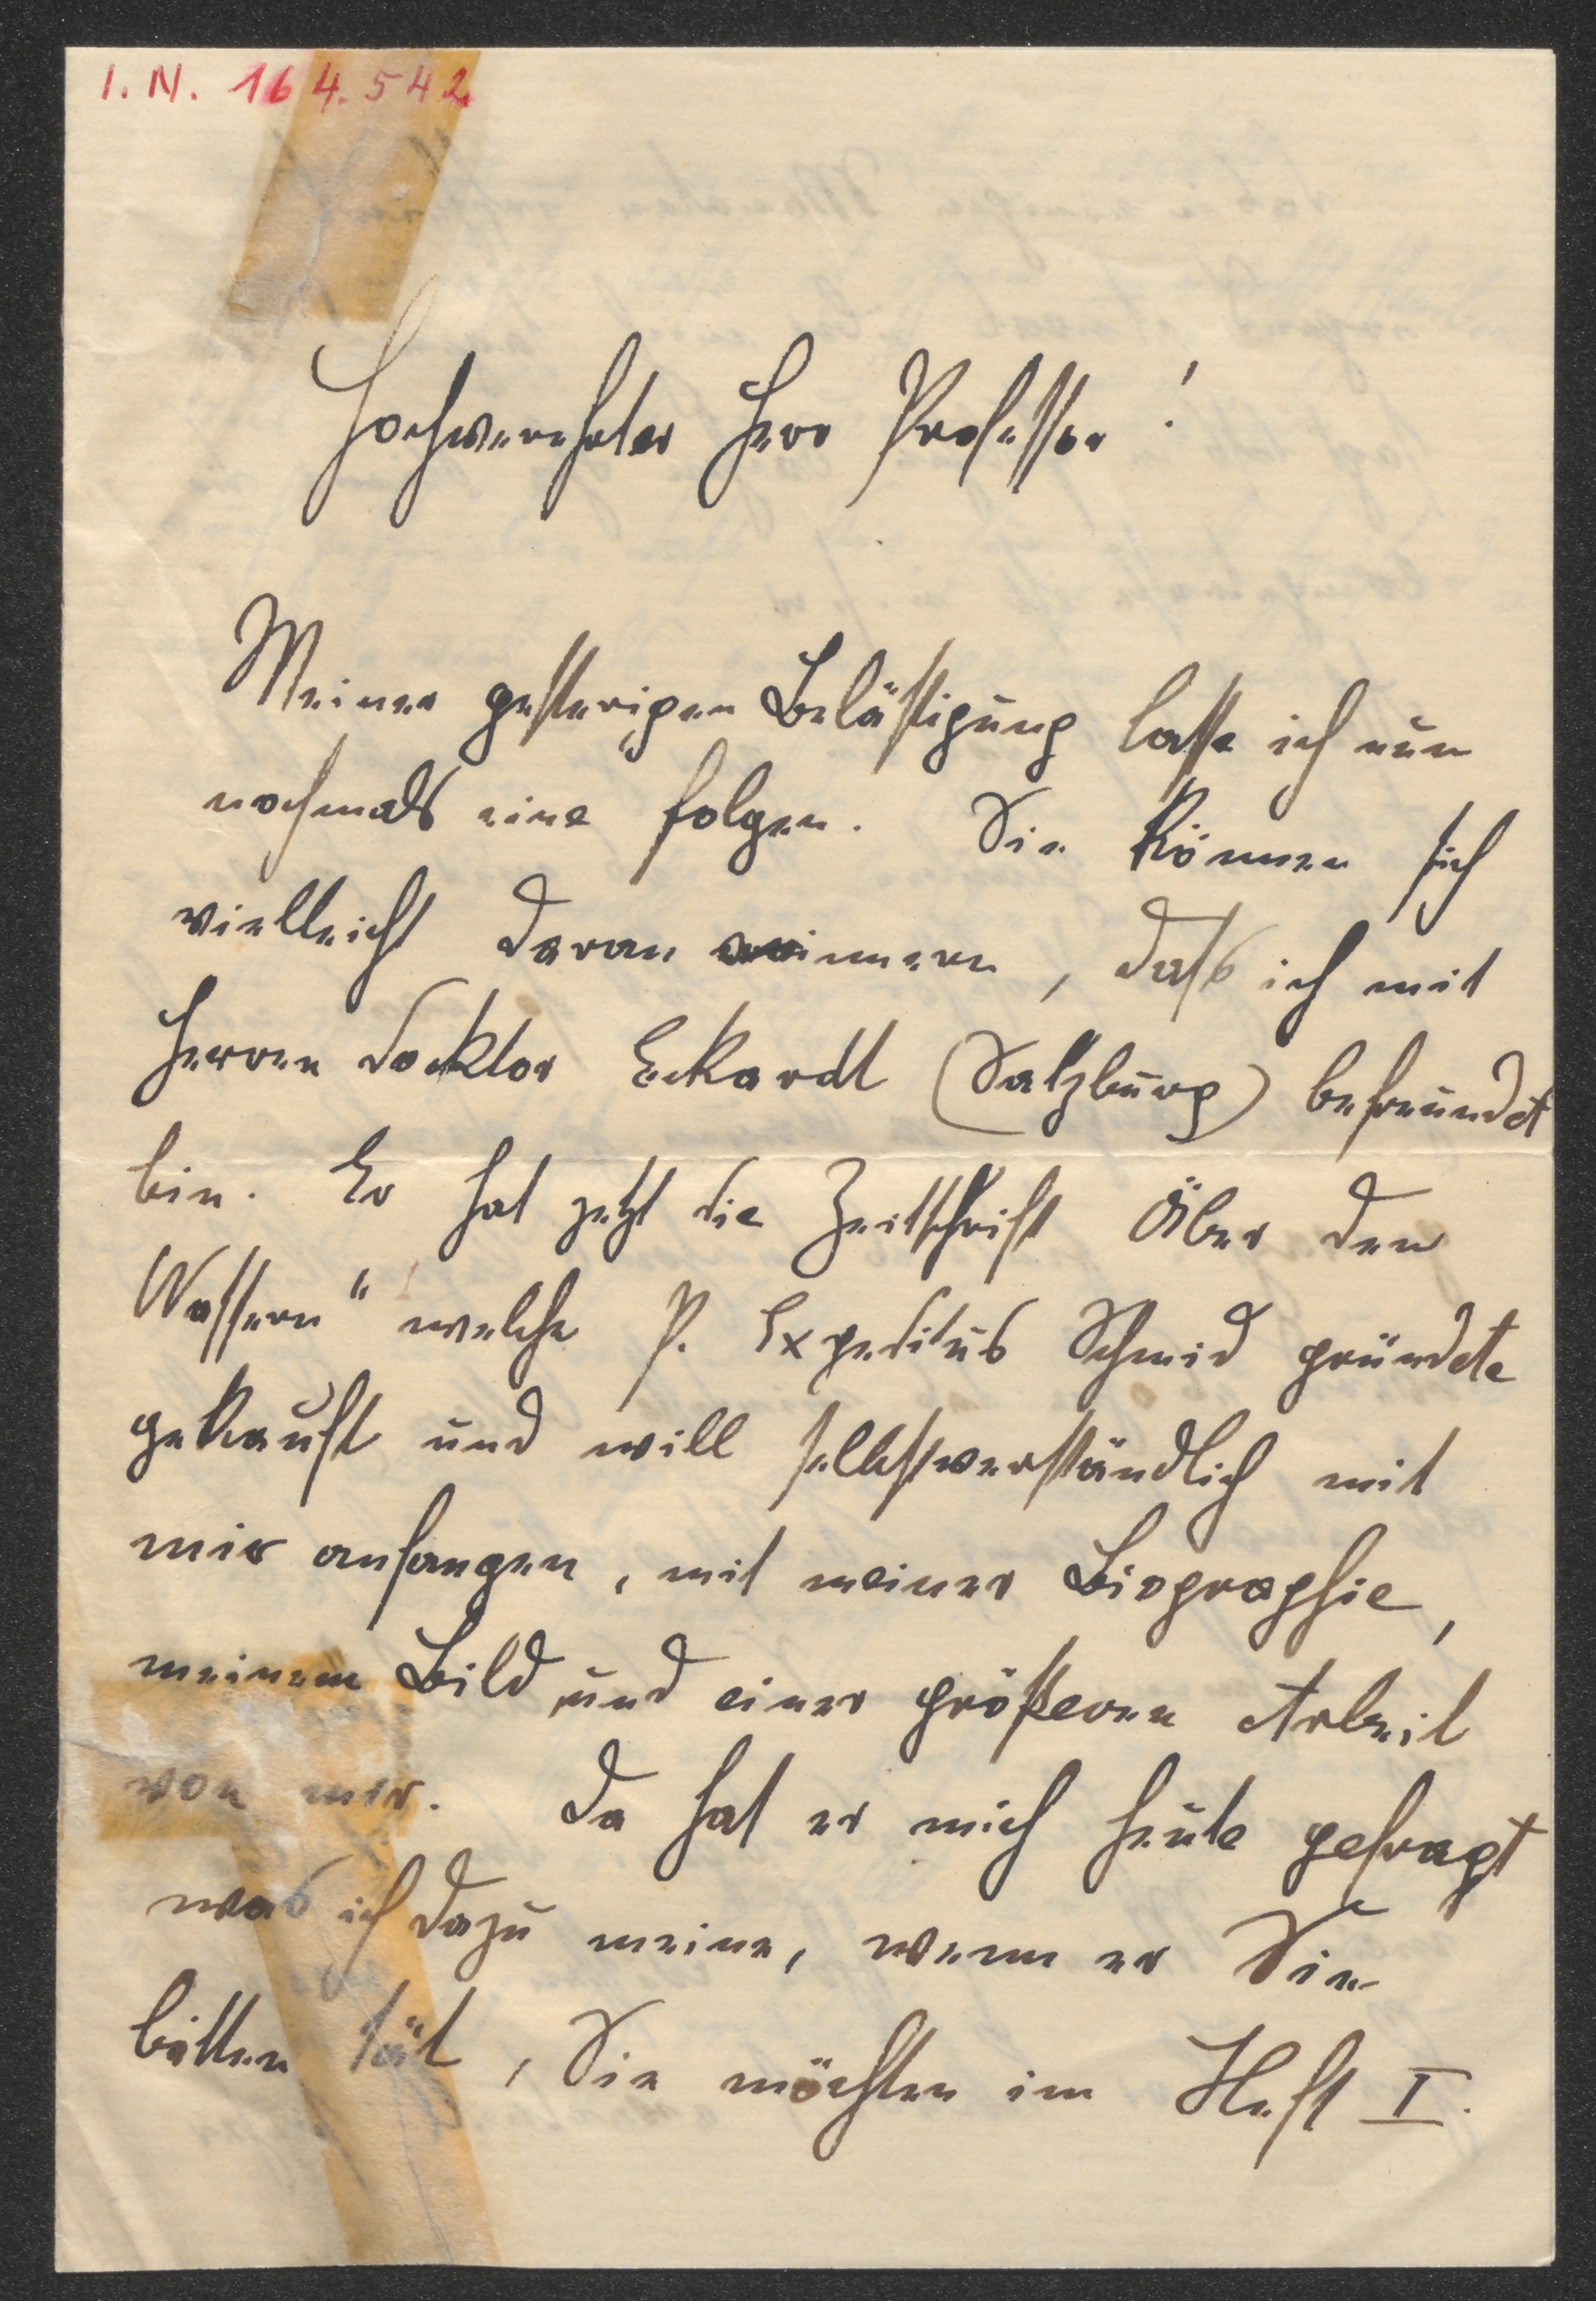 I. N. 164.542
Hochverehrter Herr Professor!
Meiner gesterigen Belästigung lasse ich nun
nochmals eine folgen. Sie können sich
vielleicht daran erinnern, daß ich mit
Herren Docktor Eckardt (Salzburg) befreundet
bin. Er hat jetzt die Zeitschrift Über den
Wassern" welche P. Expeditus Schmid gründete
gekauft und will selbstverständlich mit
mir anfangen, mit meiner Biographie,
meinem Bild und einer größeren Arbeit
von mir. Da hat er mich heute gefragt
was ich dazu meine, wenn er Sie
bitten tät, Sie möchten im Heft I.